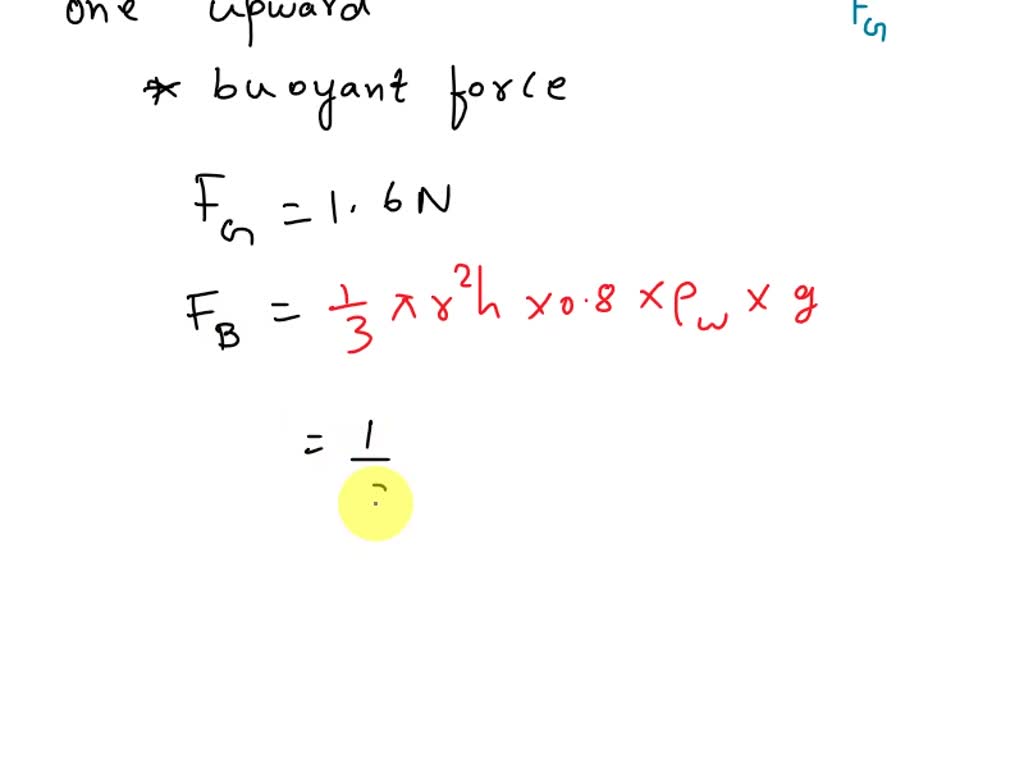 one upward
F_G
* buoyant force
F_G = 1.6 N
F_B = 1/3 π r²h × 0.8 × ρ_w × g
= 1